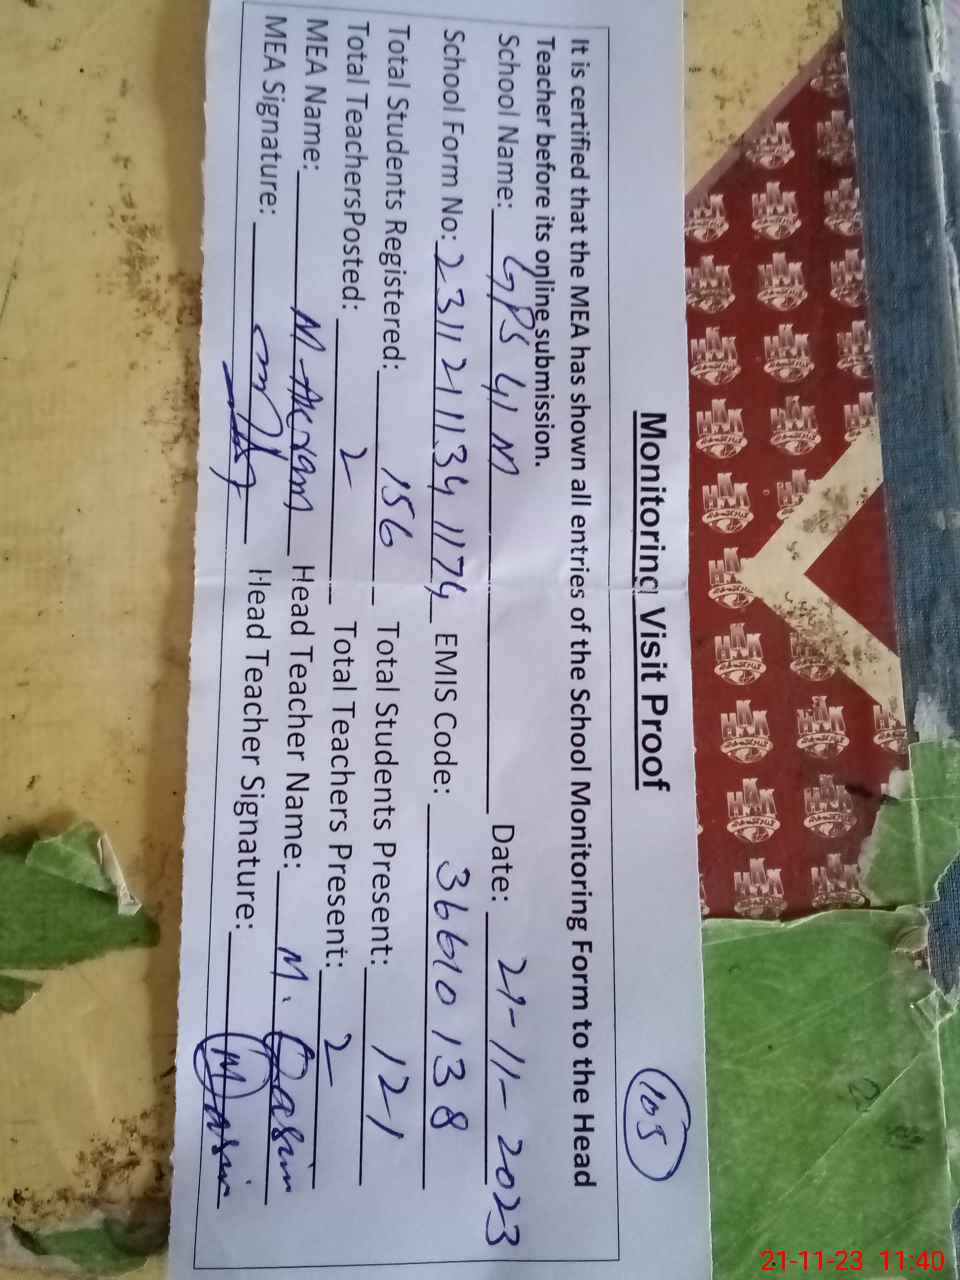 Monitoring Visit Proof
105
It is certified that the MEA has shown all entries of the School Monitoring Form to the Head
Teacher before its online submission.
School Name: GPS 41 M Date: 21-11-2023
School Form No: 2311211341174 EMIS Code: 36610138
Total Students Registered: 156 Total Students Present: 121
Total TeachersPosted: 2 Total Teachers Present: 2
MEA Name: M. Akram Head Teacher Name: M. Qasim
MEA Signature: Head Teacher Signature: M Qasim
21-11-23 11:40